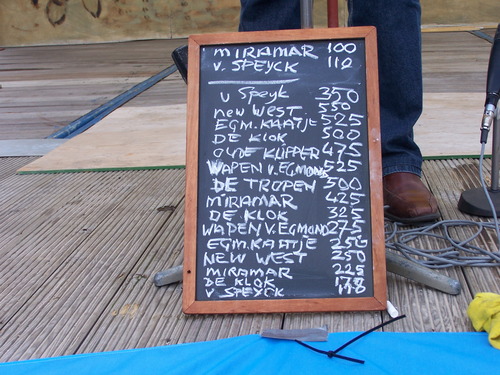 MIRAMAR 100
V. SPEYCK 110
V SPEYK 350
NEW WEST 550
EGM. KAATJE 525
DE KLOK 500
OUDE KLIPPER 475
WAPEN V. EGMOND 525
DE TROPEN 500
MIRAMAR 425
DE KLOK 325
WAPEN V. EGMOND 275
EGM. KAATJE 250
NEW WEST 250
MIRAMAR 225
DE KLOK
V SPEYCK